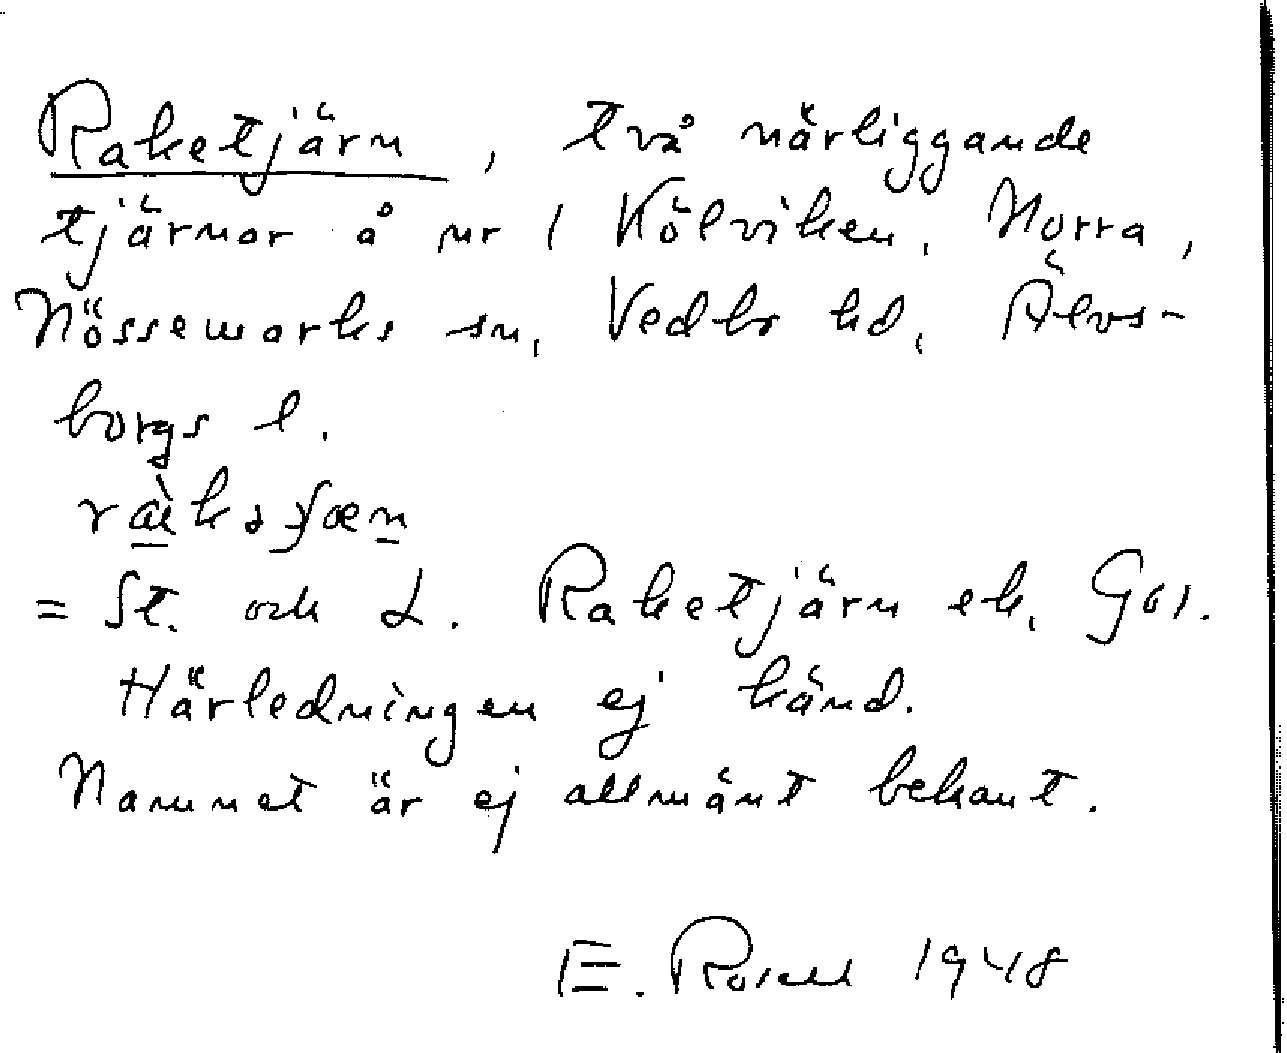 Raketjärn, två närliggande
tjärnar å nr 1 Kölviken, Norra,
Nössemarks sn, Vedbo hd, Älvs-
borgs l.
= St. och L. Raketjärn ek. Gsl.
Härledningen ej känd.
Namnet är ej allmänt bekant.
E. Rosell 1948